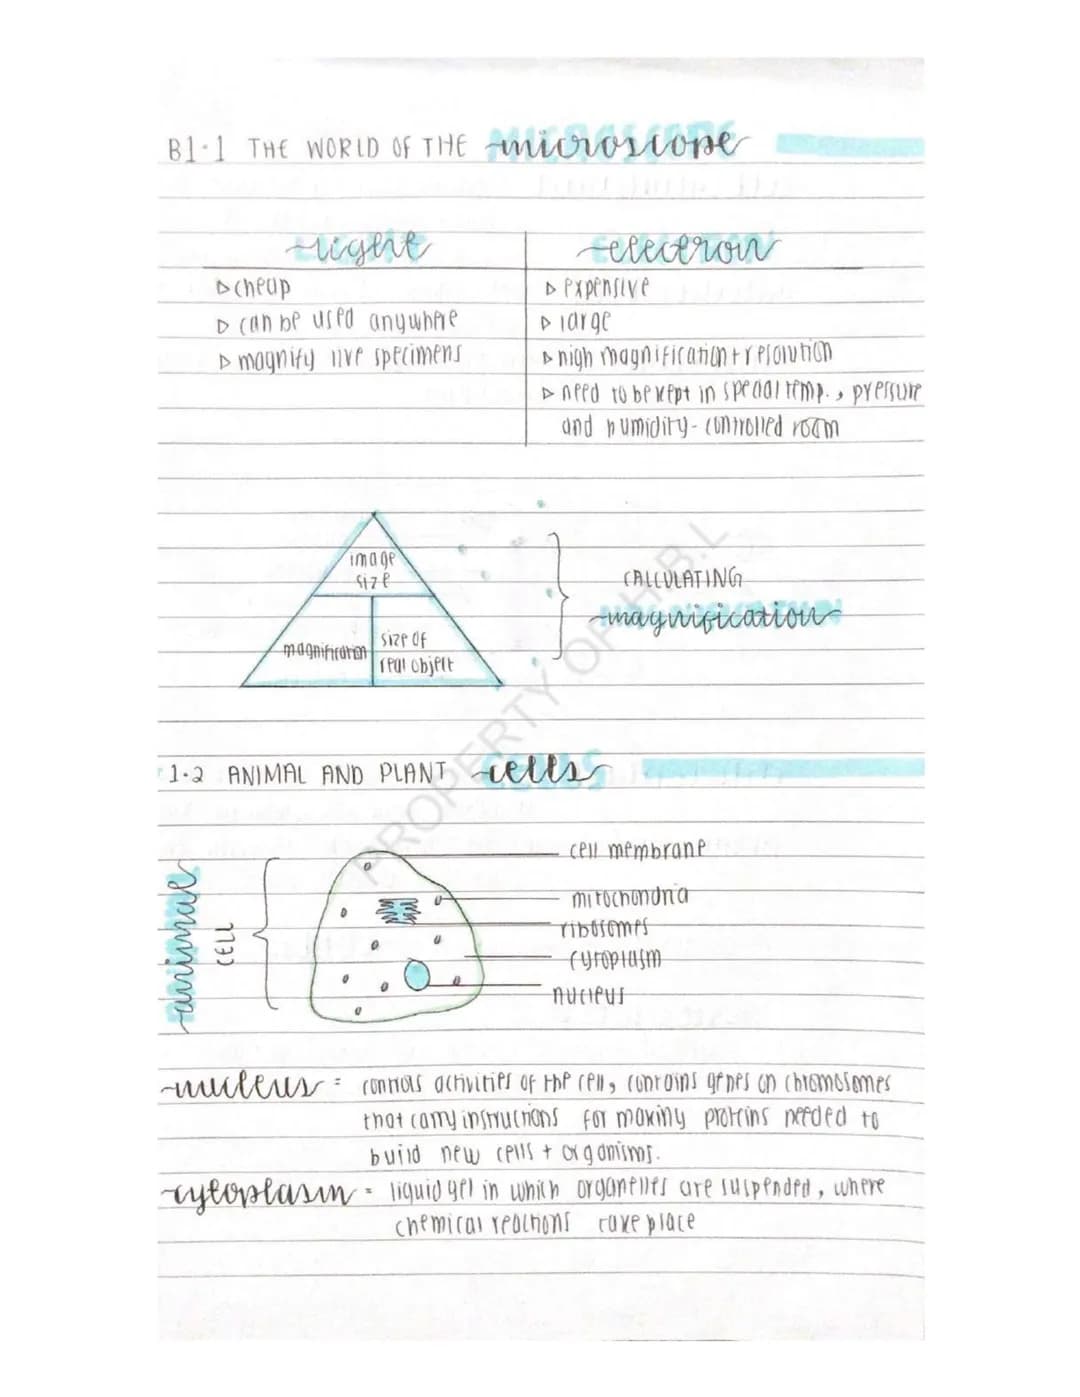 B1.1 THE WORLD OF THE microscope
light
electron
▷ cheap
▷ can be used anywhere
▷ magnify live specimens
▷ expensive
▷ large
▷ high magnification + resolution
▷ need to be kept in special temp., pressure
and humidity-controlled room
image
size
magnification
size of
real object
CALCULATING
magnification
PROPERTY OF H.B.L
1.2 ANIMAL AND PLANT cells
animal
CELL
cell membrane
mitochondria
ribosomes
cytoplasm
nucleus
nucleus = controls activities of the cell, contains genes on chromosomes
that carry instructions for making proteins needed to
build new cells + organisms.
cytoplasm = liquid gel in which organelles are suspended, where
chemical reactions take place